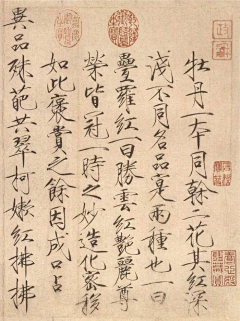 牡丹一本同榦二花其紅深
淺不同名品寔兩種也一曰
疊羅紅一曰勝雲紅艷麗尊
榮皆冠一時之妙造化密移
如此褒賞之餘因成口占
異品殊葩共翠柯嫩紅拂拂